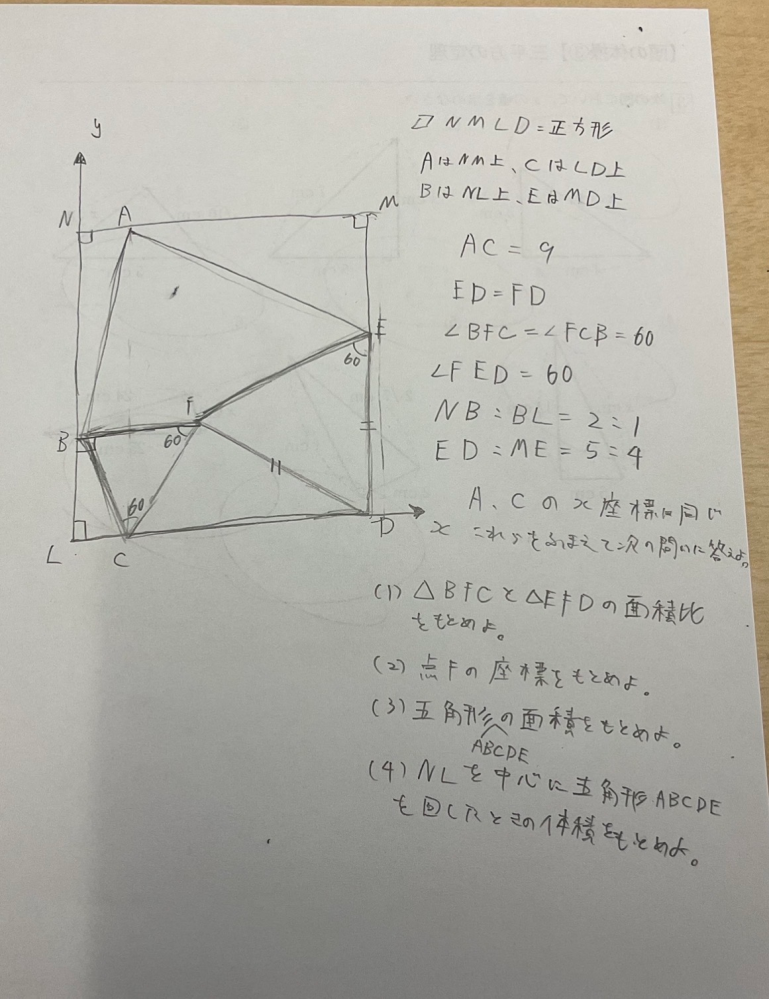 y
N
A
M
E
60
F
B
60
60
L
C
D
x
□NMLD=正方形
AはNM上、CはLD上
BはNL上、EはMD上
AC=9
ED=FD
∠BFC=∠FCB=60
∠FED=60
NB:BL=2:1
ED:ME=5:4
A、Cのx座標は同じ
これらをふまえて次の問いに答えよ。
(1)△BFCと△EFDの面積比
をもとめよ。
(2)点Fの座標をもとめよ。
(3)五角形の面積をもとめよ。
ABCDE
(4)NLを中心に五角形ABCDE
を回したときの体積をもとめよ。